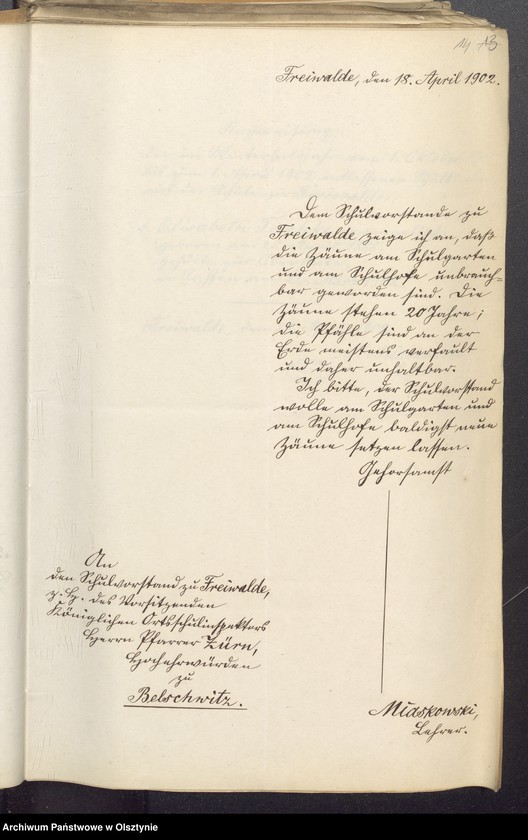 14
Freiwalde, den 18. April 1902.
Dem Schulvorstande zu
Freiwalde zeige ich an, daß
die Zäune am Schulgarten
und am Schulhofe unbrauch=
bar geworden sind. Die
Zäune stehen 20 Jahre;
die Pfähle sind an der
Erde meistens verfault
und daher unhaltbar.
Ich bitte, der Schulvorstand
wolle am Schulgarten und
am Schulhofe baldigst neue
Zäune setzen lassen.
Gehorsamst
Miaskowski,
Lehrer.
An
den Schulvorstand zu Freiwalde,
z. H. des Vorsitzenden
Königlichen Ortsschulinspektors
Herrn Pfarrer Zürn,
Hochehrwürden
zu
Belschwitz.
Archiwum Państwowe w Olsztynie